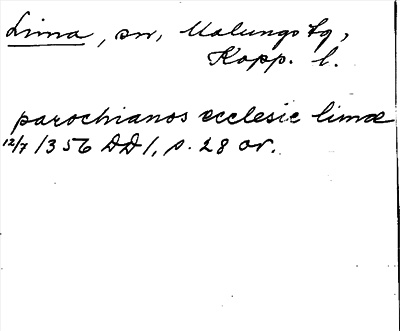 Lima, sn, Malungs tg,
Kopp. l.
parochianos ecclesie limæ
12/7 1356 DD 1, s. 28 or.